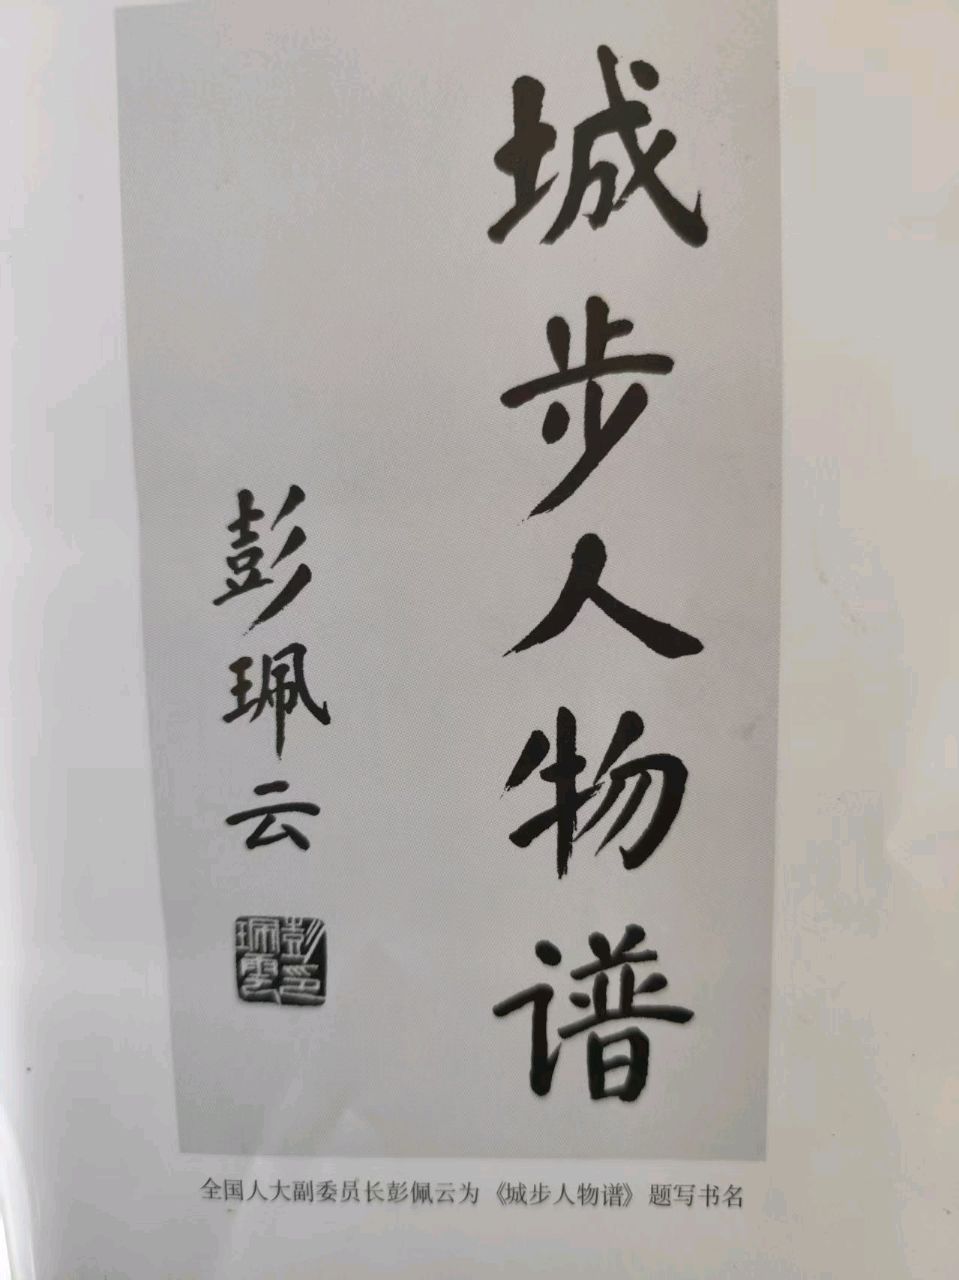 城步人物谱
彭珮云
彭珮雲印
全国人大副委员长彭佩云为《城步人物谱》题写书名